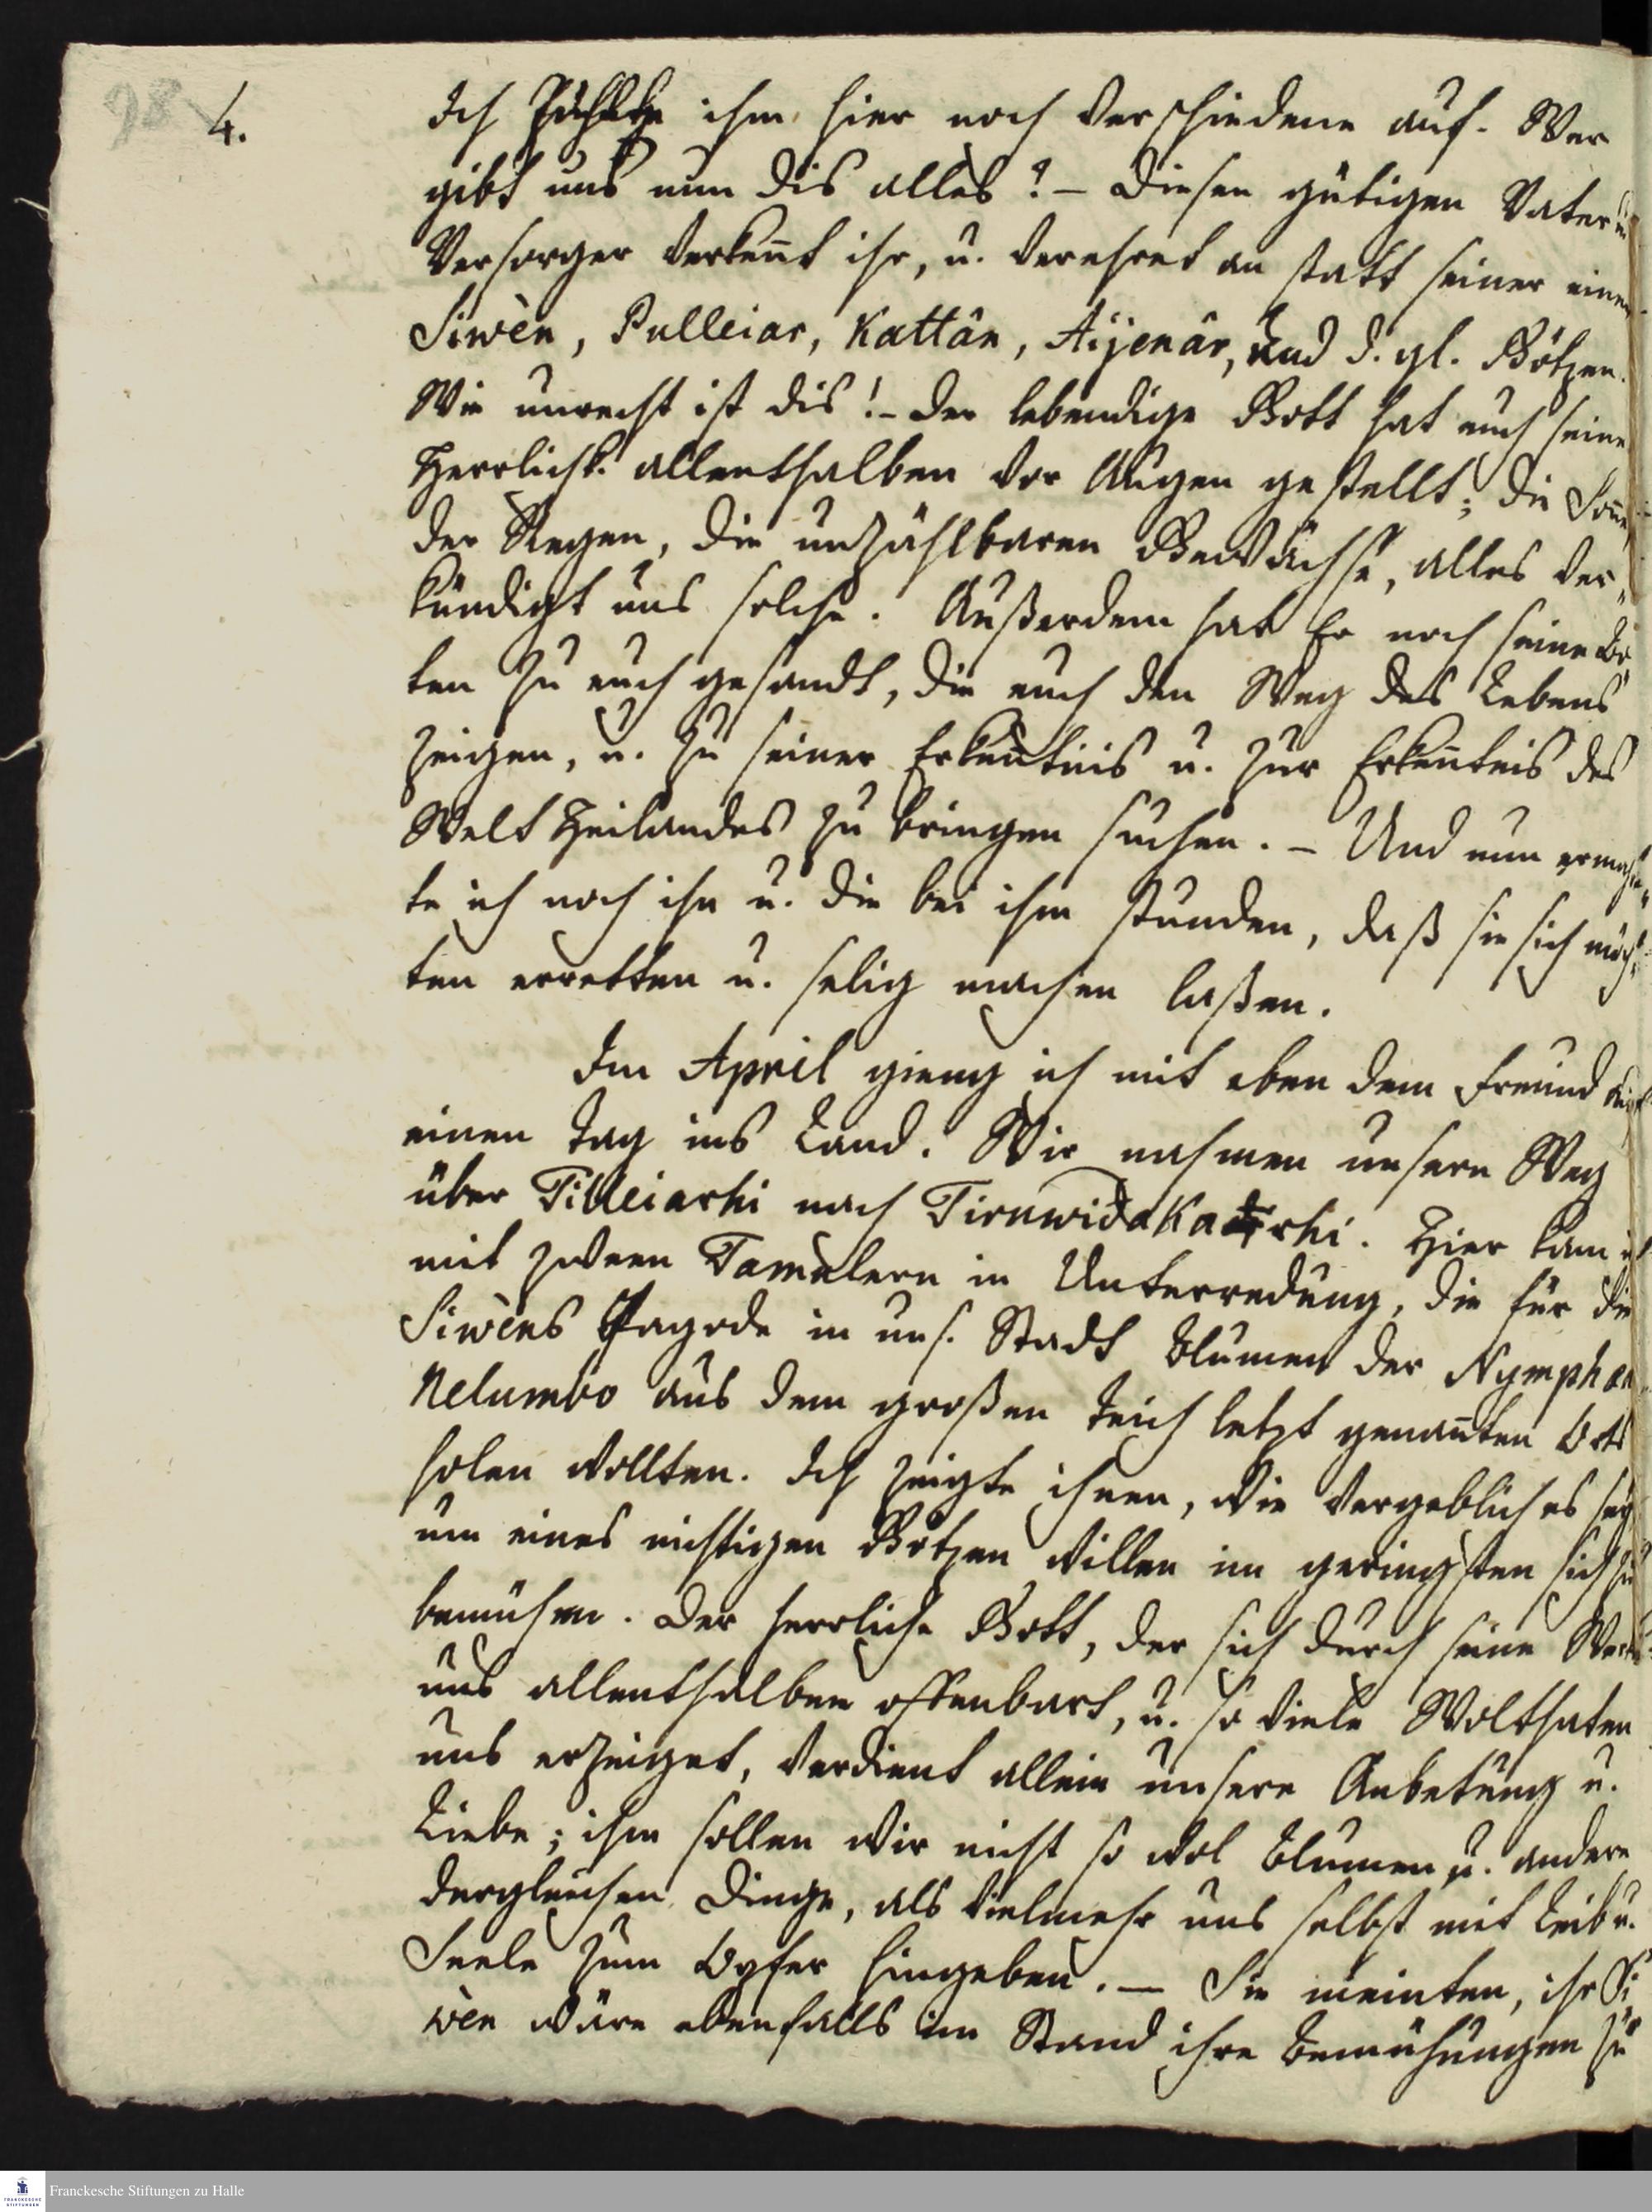 98
4.
Ich zählte ihm hier noch verschiedene auf. Wer
gibt uns nun dis alles? – Diesen gütigen Vater u.
Versorger verkeñt ihr, u. verehret an statt seiner einen
Siwèn, Pulleiar, Kattân, Aijenâr, und d. gl. Götzen.
Wie unrecht ist dis! – Der lebendige Gott hat euch seine
Herrlichk. allenthalben vor Augen gestellt; die Soñe,
der Regen, die unzählbaren Gewächse, alles ver-
kündigt uns solche. Außerdem hat Er noch seine Bo
ten zu euch gesandt, die euch den Weg des Lebens
zeigen, u. zu seiner Erkeñtnis u. zur Erkeñtnis des
Welt Heilandes zu bringen suchen. – Und nun ermahn-
te ich noch ihn u. die bei ihm stunden, daß sie sich möch-
ten erretten u. selig machen laßen.
Im April gieng ich mit eben dem Freund
einen Tag ins Land. Wir nahmen unsern Weg
über Tilleiarhi nach Tiruwidakarhi. Hier kam ich
mit zween Tamulern in Unterredung, die für die
Siwèns Pagode in uns. Stadt Blumen der Nymphaea
Nelumbo aus dem großen Teich letzt genañten Orts
holen wollten. Ich zeigte ihnen, wie vergeblich es sey
um eines nichtigen Götzen willen im geringsten sich zu
bemühen. Der herrliche Gott, der sich durch seine Werke
uns allenthalben offenbart, u. so viele Wolthaten
uns erzeiget, verdient allein unsere Anbetung u.
Liebe; ihm sollen wir nicht so wol Blumen u. andere
dergleichen Dinge, als vielmehr uns selbst mit Leib u.
Seele zum Opfer hingeben. — Sie meinten, ihr Si
wèn wäre ebenfalls im Stand ihre Bemühungen zu
FRANCKESCHE STIFTUNGEN
Franckesche Stiftungen zu Halle